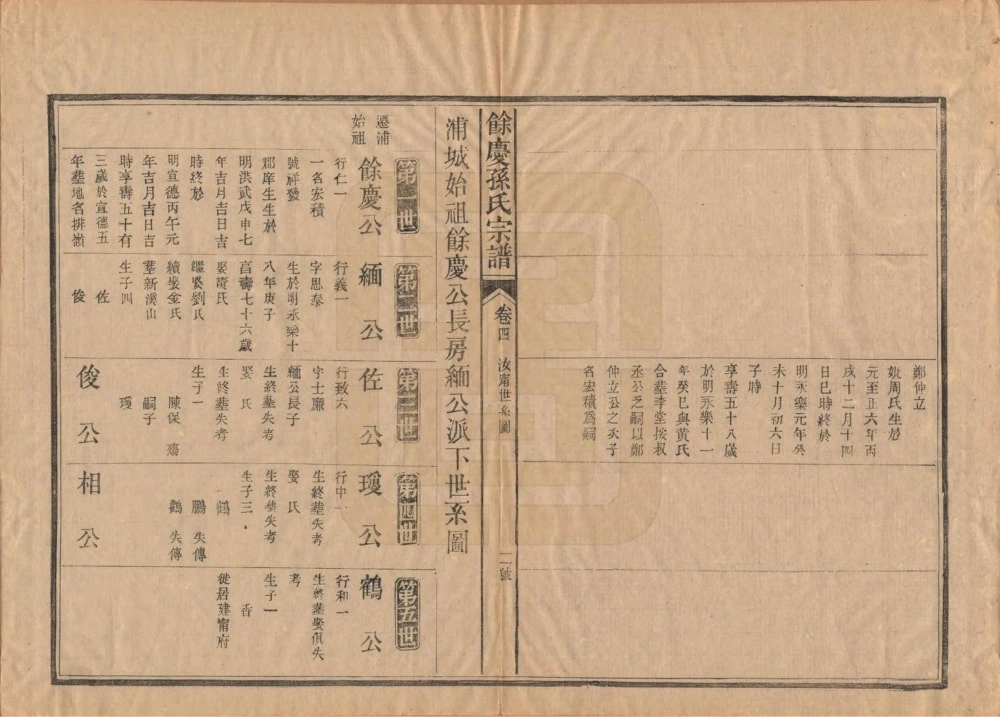 鄭仲立
娶周氏生於
元至正六年丙
戌十二月十四
日巳時終於
明永樂元年癸
未十月初六日
子時
享壽五十八歲
於明永樂十一
年癸巳與黃氏
合塟李堂按叔
丞公乏嗣以鄭
仲立公之次子
名宏積爲嗣
餘慶孫氏宗譜
卷四
汝甯世系圖
二號
浦城始祖餘慶公長房緬公派下世系圖
第一世
遷浦
始祖
餘慶公
行仁一
一名宏積
號祥發
郡庠生生於
明洪武戊申七
年吉月吉日吉
時終於
明宣德丙午元
年吉月吉日吉
時享壽五十有
三歲於宣德五
年塟地名排嶺
第二世
緬公
行義一
字思泰
生於明永樂十
八年庚子
享壽七十六歲
娶黃氏
繼娶劉氏
續娶金氏
塟新溪山
生子四
佐
俊
第三世
佐公
行致六
字士廉
緬公長子
生終塟失考
娶 氏
生終塟失考
生子一
陳保 殤
嗣子
瓊
俊公
第四世
瓊公
行中一
生終塟失考
娶 氏
生終塟失考
生子三
鶴
鵬 失傳
鸛 失傳
相公
第五世
鶴公
行和一
生終塟娶俱失
考
生子一
香
徙居建甯府